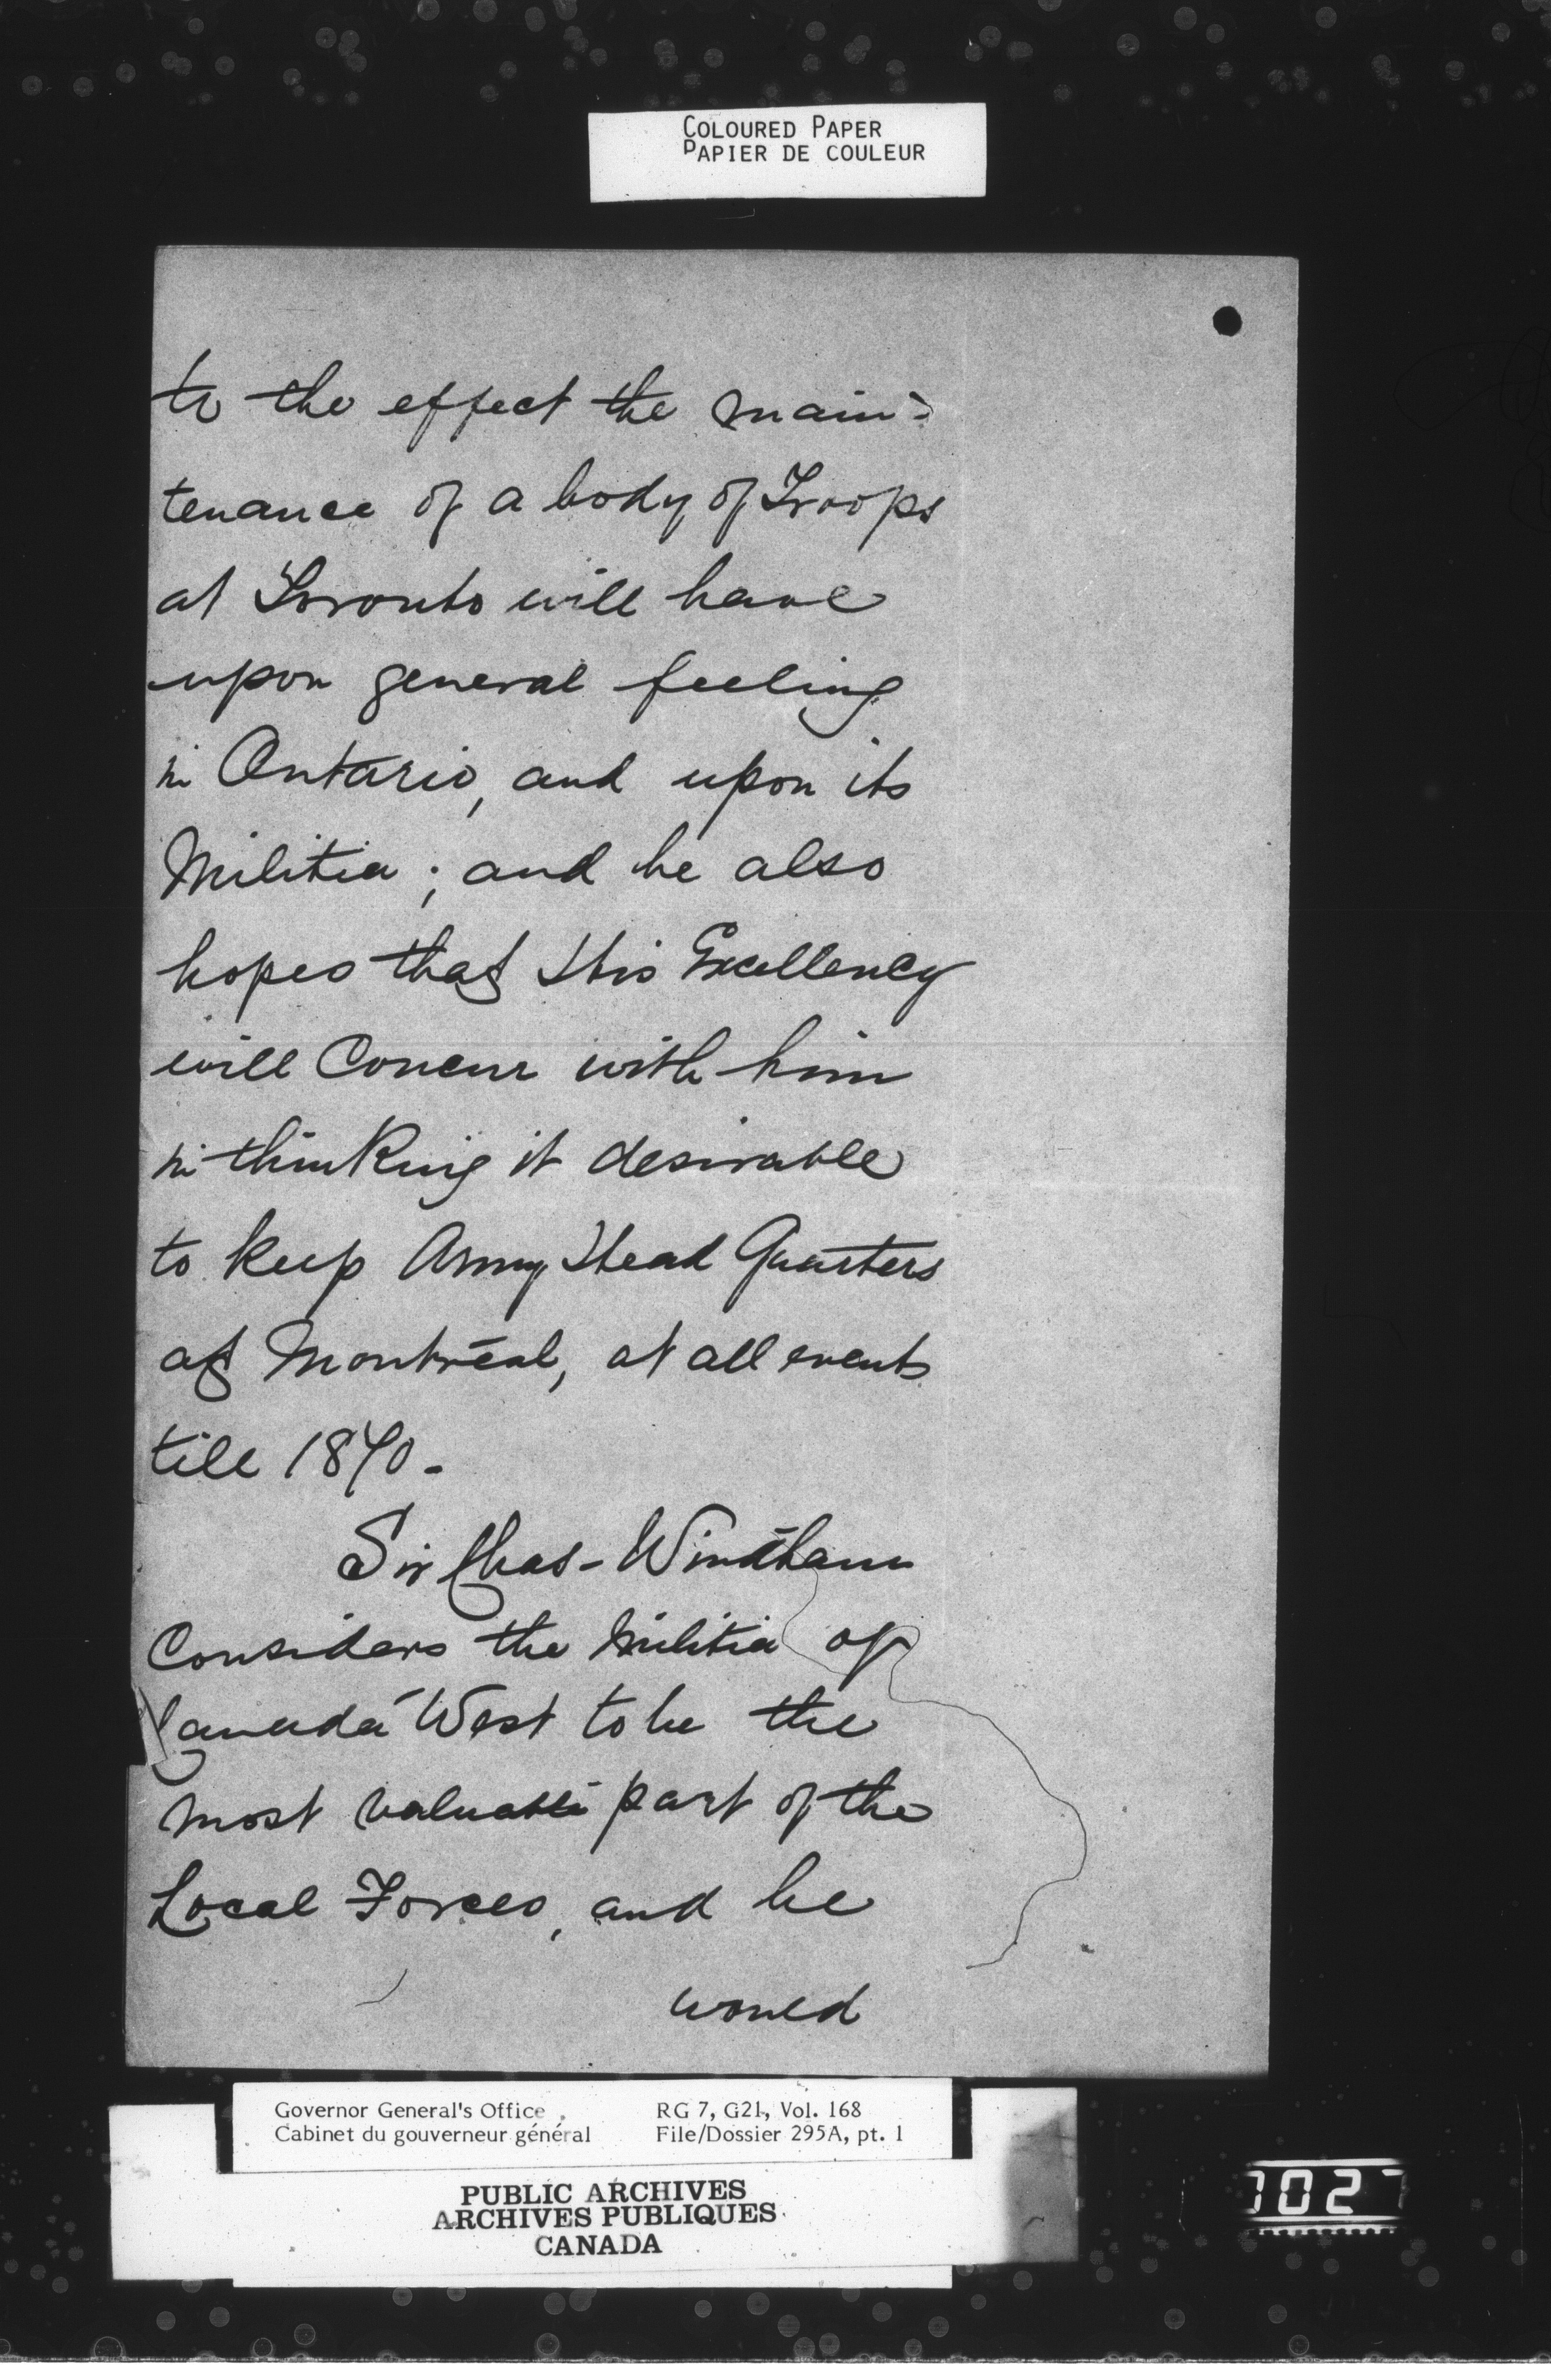 COLOURED PAPER
PAPIER DE COULEUR
to the effect the main=
tenance of a body of Troops
at Toronto will have
upon general feeling
in Ontario, and upon its
Militia; and he also
hopes that His Excellency
will Concur with him
in thinking it desirable
to keep Army Head Quarters
at Montreal, at all events
till 1870-
Sir Chas- Windham
Considers the Militia of
Canada West to be the
most valuable part of the
Local Forces, and he
would
Governor General's Office RG 7, G21, Vol. 168
Cabinet du gouverneur général File/Dossier 295A, pt. 1
PUBLIC ARCHIVES
ARCHIVES PUBLIQUES
CANADA